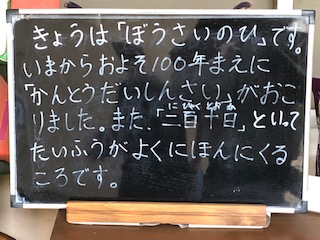 きょうは「ぼうさいのひ」です。
いまからおよそ100年まえに
「かんとうだいしんさい」がおこ
りました。また、「二百十日」といって
たいふうがよくにほんにくる
ころです。